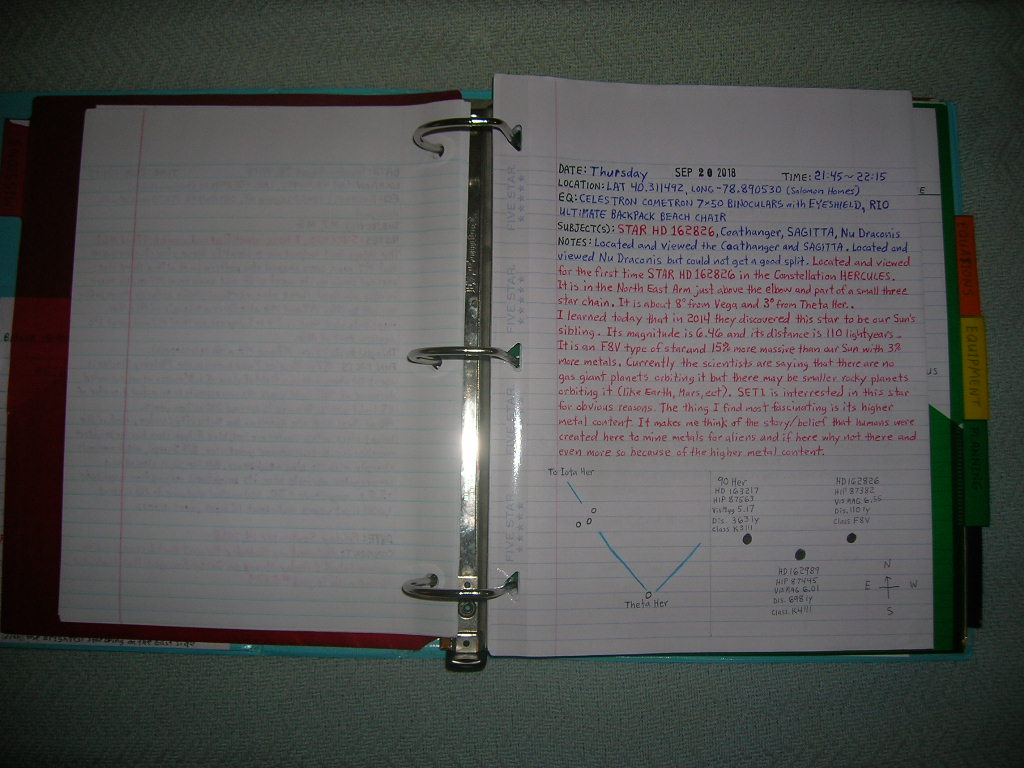 DATE: Thursday SEP 20 2018 TIME: 21:45~22:15
LOCATION: LAT 40.311492, LONG -78.890530 (Solomon Homes)
EQ: CELESTRON COMETRON 7x50 BINOCULARS with EYESHIELD, RIO
ULTIMATE BACKPACK BEACH CHAIR
SUBJECT(S): STAR HD 162826, Coathanger, SAGITTA, Nu Draconis
NOTES: Located and viewed the Coathanger and SAGITTA. Located and
viewed Nu Draconis but could not get a good split. Located and viewed
for the first time STAR HD 162826 in the Constellation HERCULES.
It is in the North East Arm just above the elbow and part of a small three
star chain. It is about 8° from Vega and 3° from Theta Her..
I learned today that in 2014 they discovered this star to be our Sun's
sibling. Its magnitude is 6.46 and its distance is 110 lightyears.
It is an F8V type of star and 15% more massive than our Sun with 3%
more metals. Currently the scientists are saying that there are no
gas giant planets orbiting it but there may be smaller rocky planets
orbiting it (like Earth, Mars, ect). SETI is interrested in this star
for obvious reasons. The thing I find most fascinating is its higher
metal content. It makes me think of the story/belief that humans were
created here to mine metals for aliens and if here why not there and
even more so because of the higher metal content.
To Iota Her
Theta Her
90 Her
HD 163217
HIP 87563
VisMag 5.17
Dis. 363 ly
Class K3III
HD 162826
HIP 87382
Vis MAG 6.55
Dis. 110 ly
Class F8V
HD 162989
HIP 87445
VisMAG 6.01
Dis. 698 ly
Class. K4III
N
E W
S
FIVE STAR
FIVE STAR
FIVE STAR
FIVE STAR
E
US
EQUIPMENT